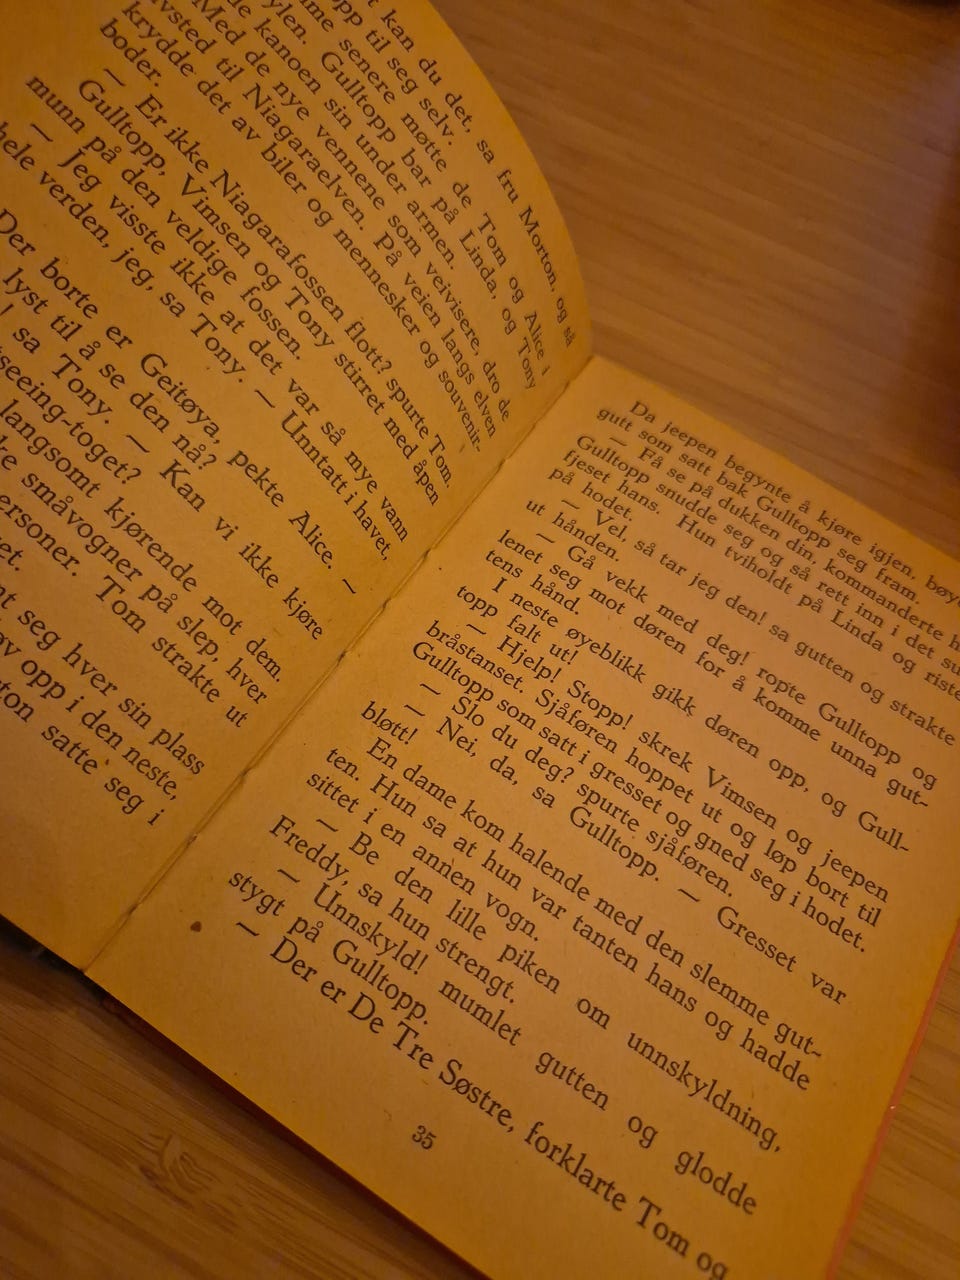 t kan du det, sa fru Morton, og så
opp til seg selv.
me senere møtte de Tom og Alice i
ylen. Gulltopp bar på Linda, og Tony
de kanoen sin under armen.
Med de nye vennene som veivisere, dro de
avsted til Niagaraelven. På veien langs elven
krydde det av biler og mennesker og souvenir-
boder.
— Er ikke Niagarafossen flott? spurte Tom.
Gulltopp, Vimsen og Tony stirret med åpen
munn på den veldige fossen.
— Jeg visste ikke at det var så mye vann
hele verden, jeg, sa Tony. — Unntatt i havet,
Der borte er Geitøya, pekte Alice. —
lyst til å se den nå?
! sa Tony. — Kan vi ikke kjøre
tseeing-toget?
langsomt kjørende mot dem.
ke småvogner på slep, hver
ersoner. Tom strakte ut
et.
nt seg hver sin plass
ev opp i den neste,
ton satte seg i
Da jeepen begynte å kjøre igjen, bøy
gutt som satt bak Gulltopp seg fram.
— Få se på dukken din, kommanderte h
Gulltopp snudde seg og så rett inn i det su
fjeset hans. Hun tviholdt på Linda og riste
på hodet.
— Vel, så tar jeg den! sa gutten og strakte
ut hånden.
— Gå vekk med deg! ropte Gulltopp og
lenet seg mot døren for å komme unna gut-
tens hånd.
I neste øyeblikk gikk døren opp, og Gull-
topp falt ut!
— Hjelp! Stopp! skrek Vimsen og jeepen
bråstanset. Sjåføren hoppet ut og løp bort til
Gulltopp som satt i gresset og gned seg i hodet.
— Slo du deg? spurte sjåføren.
— Nei, da, sa Gulltopp. — Gresset var
bløtt!
En dame kom halende med den slemme gut-
ten. Hun sa at hun var tanten hans og hadde
sittet i en annen vogn.
— Be den lille piken om unnskyldning,
Freddy, sa hun strengt.
— Unnskyld! mumlet gutten og glodde
stygt på Gulltopp.
— Der er De Tre Søstre, forklarte Tom og
35